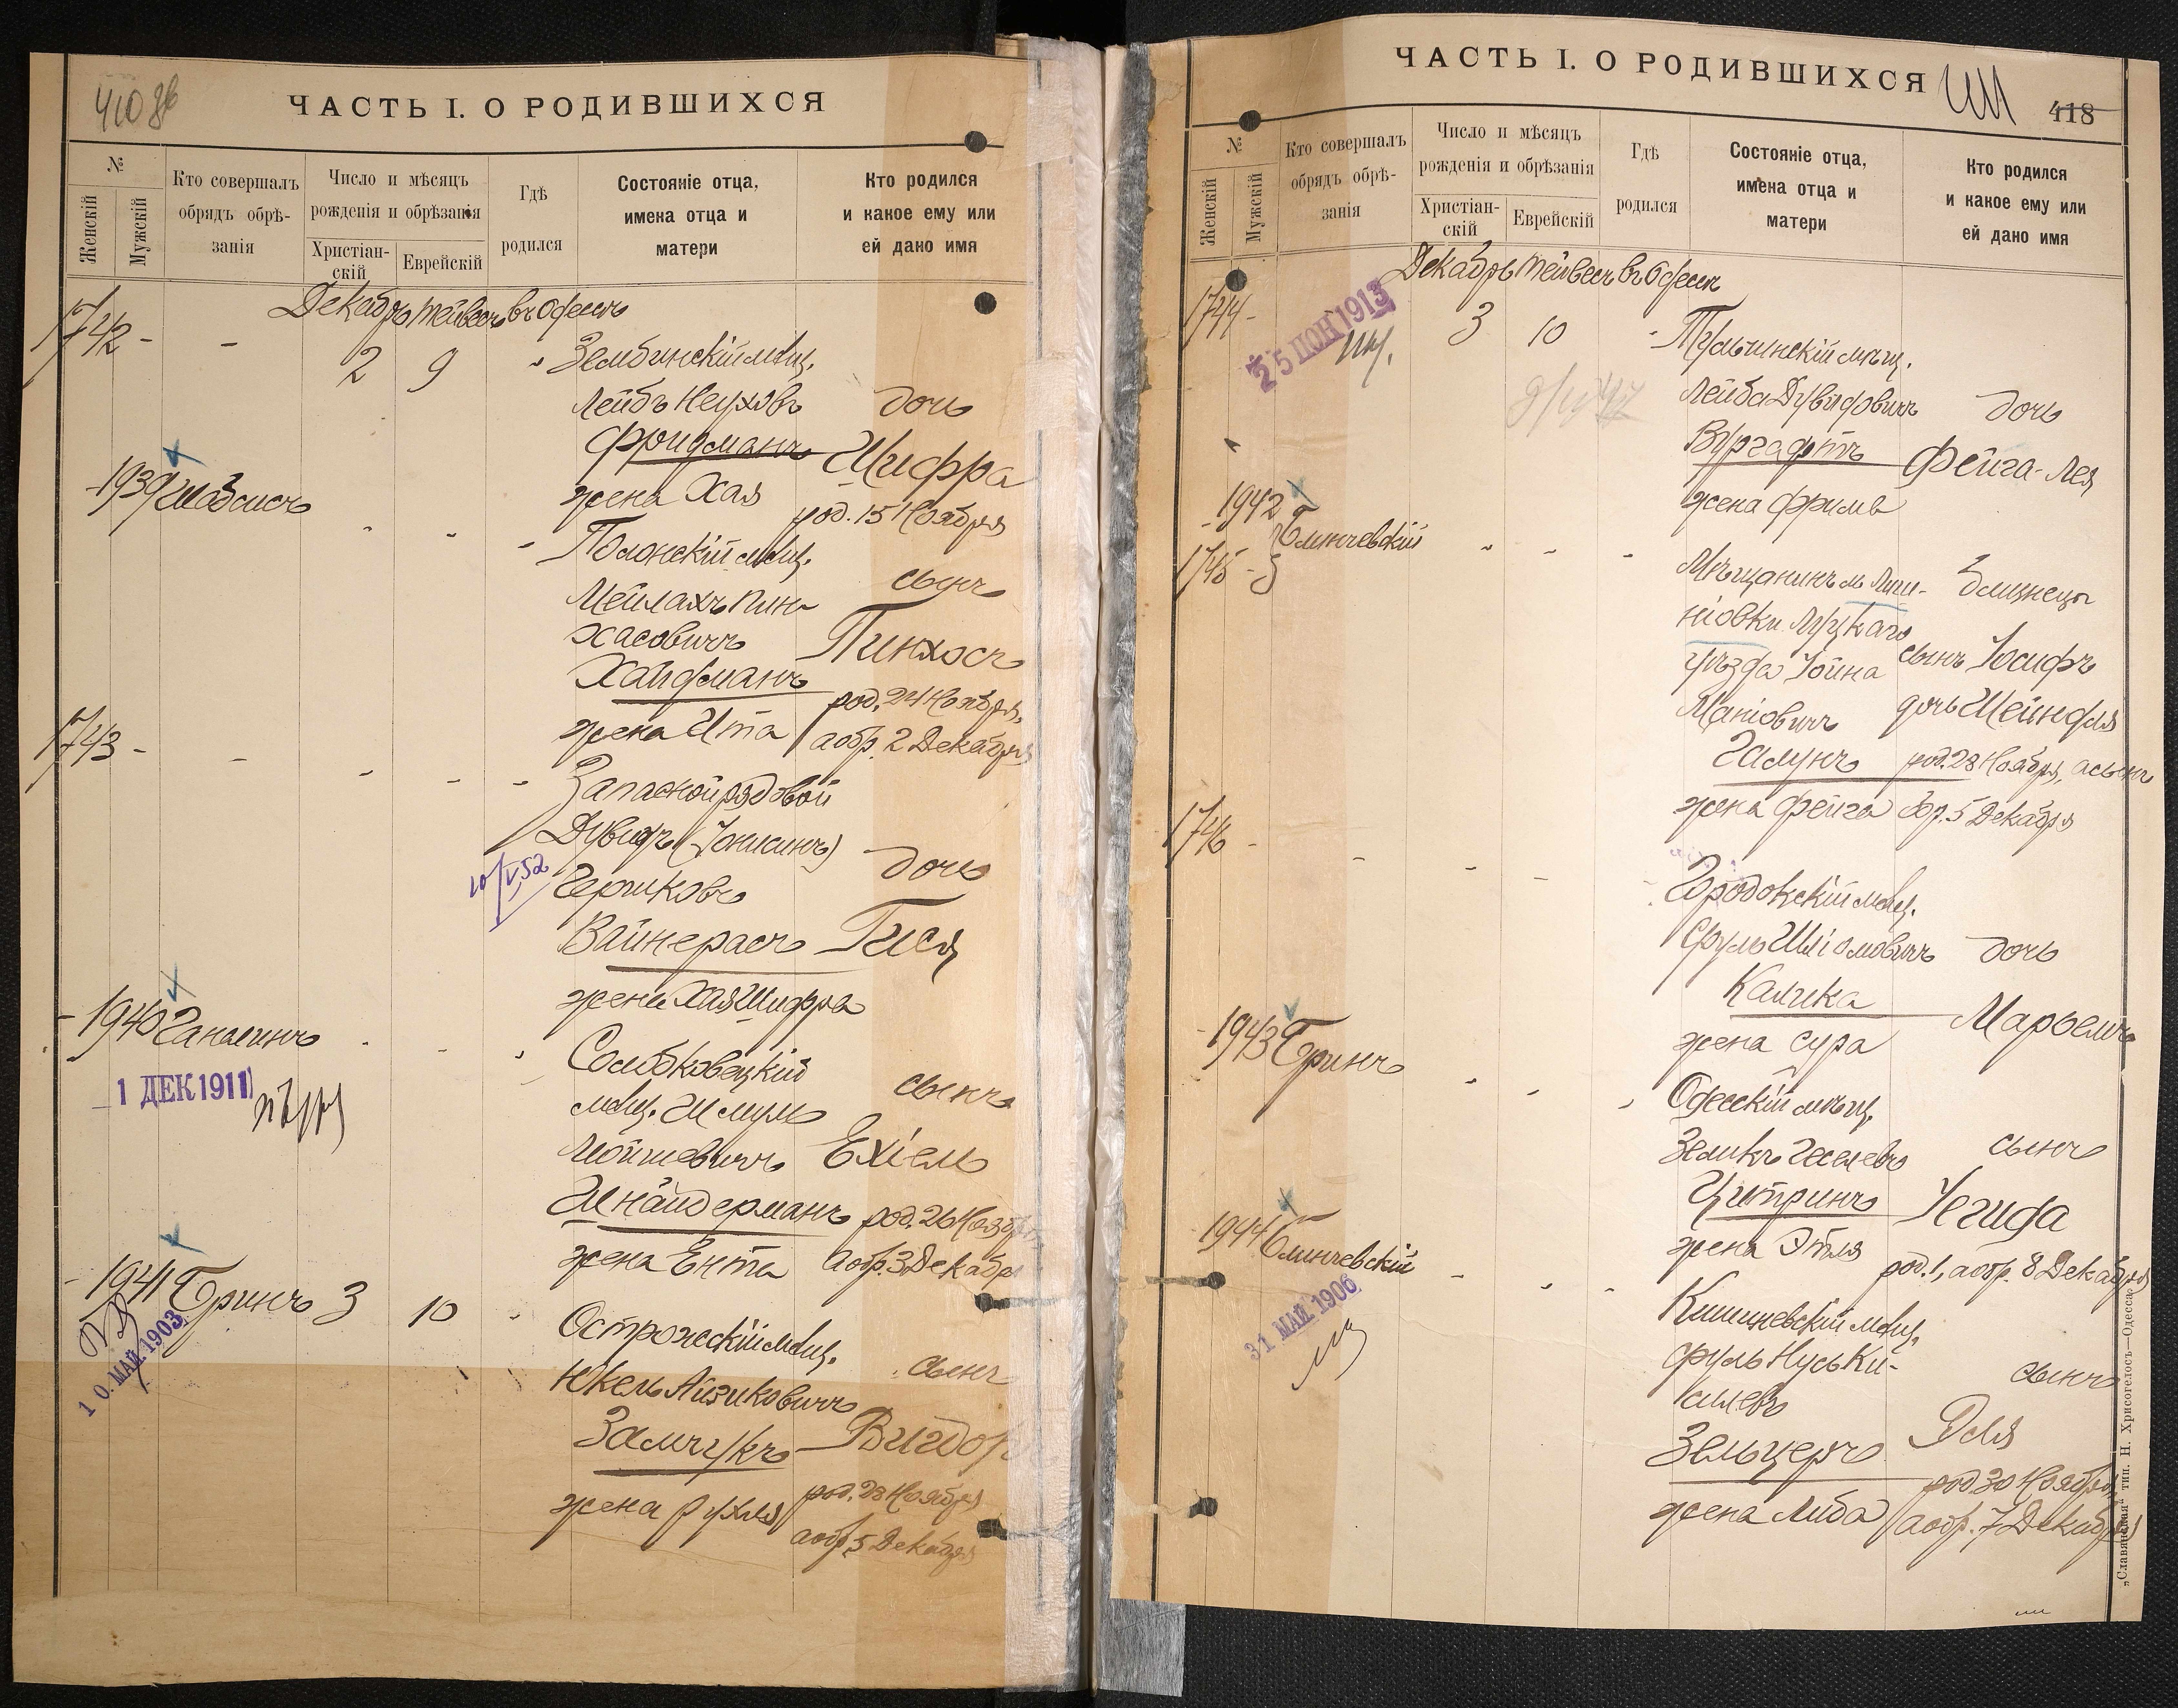 ЧАСТЬ I. О РОДИВШИХСЯ
№
Женскій
Мужскій
Кто совершалъ
обрядъ обрѣ-
занія
Число и мѣсяцъ
рожденія и обрѣзанія
Христіан-
скій
Еврейскій
Гдѣ
родился
Состояніе отца,
имена отца и
матери
Кто родился
и какое ему или
ей дано имя
Декабрь Тейвесъ въ Одессѣ
1742 - - 2 9 " Зембинскій мѣщ.
Лейбъ Неуховъ дочь
Фридманъ Шифра
жена Хая род. 15 Ноября
1939 Шабсисъ - - - Полонскій мѣщ.
Мейлахъ Пин- сынъ
хасовичъ Пинхосъ
Хайфманъ род. 24 Ноября,
жена Ита а обр. 2 Декабря
1743 - - - - - Запасной рядовой
Дувидъ (Іонисинъ) дочь
10/V 52
Гершковъ
Вайнерасъ Гися
жена Хая Шифра
1940 Ганапинъ - - " Солобковецкій
1 ДЕК 1911
мѣщ. Шмуль сынъ
Мойшевичъ Ехіель
Шнайдерманъ род. 26 Нояб
жена Ента а обр. 3 Декабр
1941 Гринъ 3 10 " Острожскій мѣщ.
10 МАЙ 1903
Юкель Айзиковичъ сынъ
Замчукъ Вигдор
жена Рухля род. 28 Ноября
а обр. 5 Декабря
ЧАСТЬ I. О РОДИВШИХСЯ
418
№
Женскій
Мужскій
Кто совершалъ
обрядъ обрѣ-
занія
Число и мѣсяцъ
рожденія и обрѣзанія
Христіан-
скій
Еврейскій
Гдѣ
родился
Состояніе отца,
имена отца и
матери
Кто родился
и какое ему или
ей дано имя
Декабрь Тейвесъ въ Одессѣ
1744 - 3 10 " Тульчинскій мѣщ.
25 ІЮН 1913
Лейба Дувидовичъ дочь
Вургафтъ Фейга-Лея
жена Фрима
1942 Блинчевскій - - -
1745 - Мѣщанинъ м. Лиш- близнецы
ніовки Луцкаго
уѣзда Іойна сынъ Іосифъ
Маніовичъ дочь Шейндля
Галунъ род. 28 Ноября, а сынъ
жена Фейга обр. 5 Декабря
1746 - - - - - Городокскій мѣщ.
Сруль Шліомовичъ дочь
Калика Марьемъ
жена Сура
1943 Гринъ - - - Одесскій мѣщ.
Зеликъ Геселевъ сынъ
Цитринъ Іегида
жена Этля род. 1, а обр. 8 Декабря
1944 Блинчевскій - - - Кишиневскій мѣщ.
31 МАЙ 1906
Сруль Нусь Ки-
силевъ сынъ
Зельцеръ Эля
род. 30 Ноября,
жена Либа а обр. 7 Декабря
„Славянская“ тип. Н. Хрисогелосъ—Одесса.